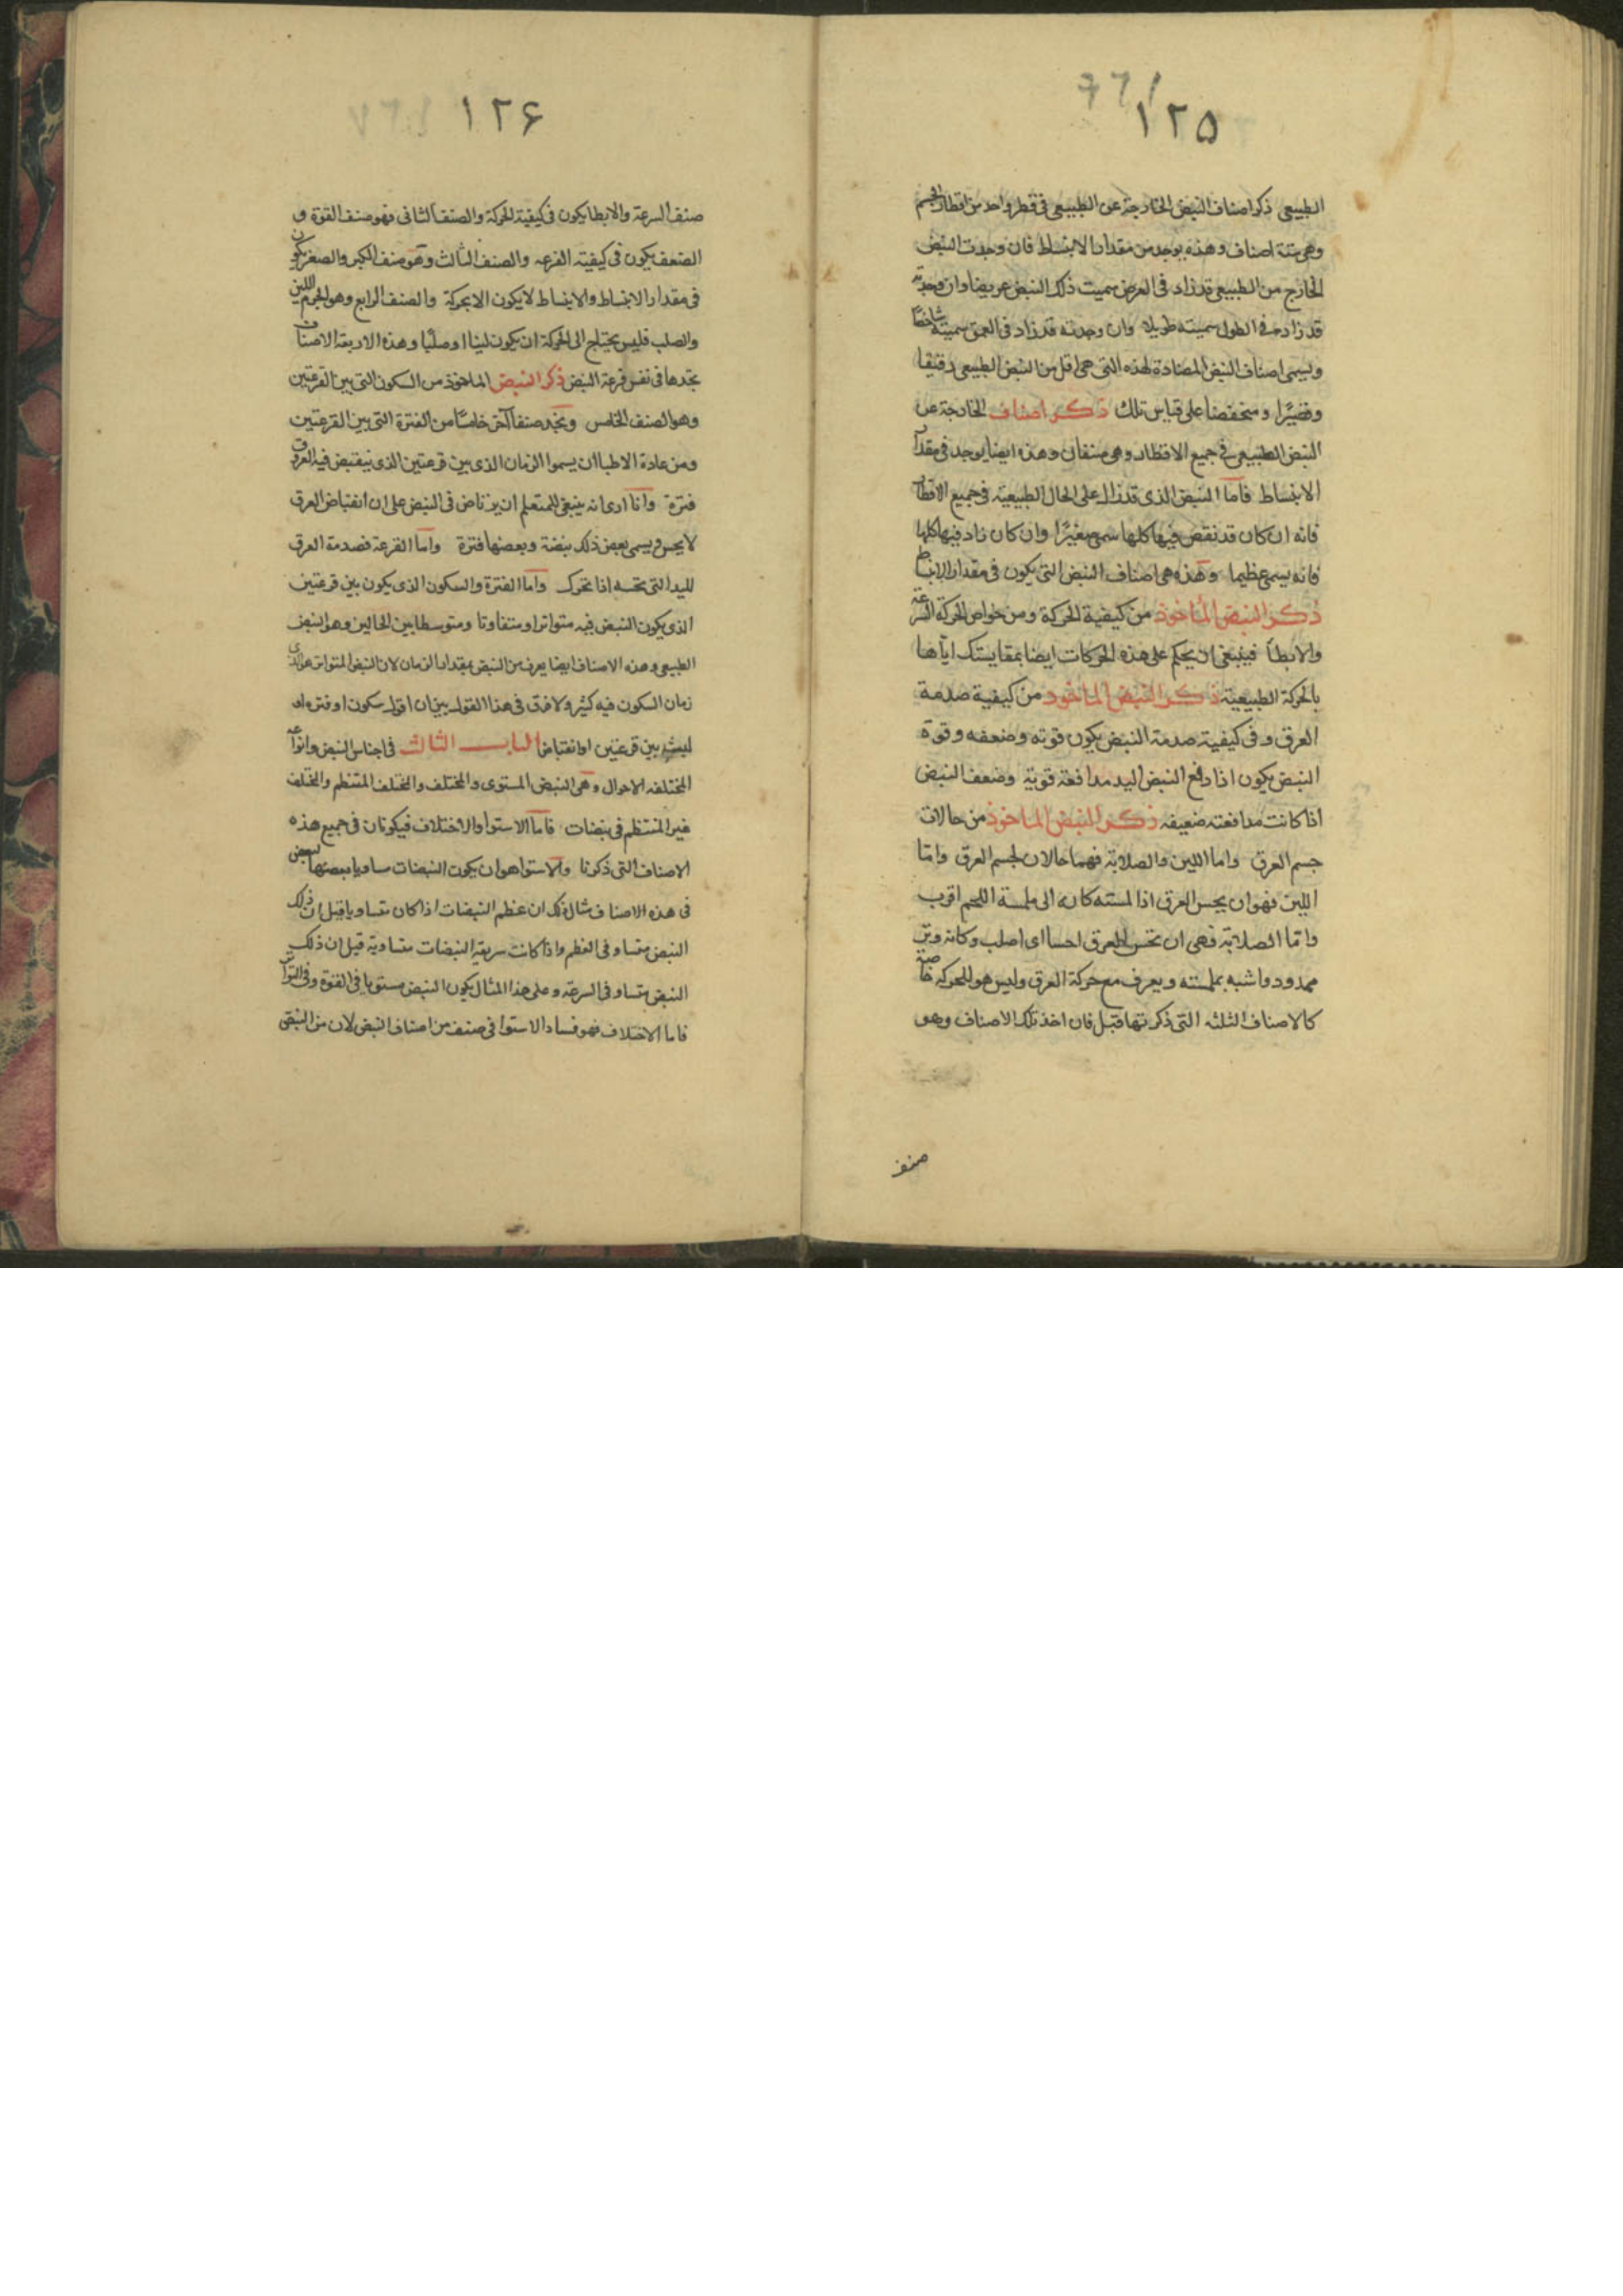 ١٢٥
الطبيعى ذكر اصناف النبض الخارجة عن الطبيعى فى قطر واحد من اقطار الجسم
وهى ستة اصناف وهذه يوجد من مقدار الانبساط فان وجدت النبض
الخارج من الطبيعى قد زاد فى العرض سميت ذلك النبض عريضا وان وجدته
قد زاد فى الطول سميته طويلا وان وجدته قد زاد فى العمق سميته شاخصًا
ويسمى اصناف النبض المضادة لهذه التى هى اقل من النبض الطبيعى دقيقا
وقصيرًا ومنخفضا على قياس تلك ذكر اصناف الخارجة عن
النبض الطبيعى فى جميع الاقطار وهى صنفان وهذه ايضا يوجد فى مقدار
الانبساط فاما النبض الذى قد زال على الحال الطبيعية فى جميع الاقطار
فانه ان كان قد نقص فيها كلها سمى صغيرًا وان كان زاد فيها كلها
فانه يسمى عظيما وهذه هى اصناف النبض التى يكون فى مقدار الانبساط
ذكر النبض المأخوذ من كيفية الحركة ومن خواص الحركة السرعة
والابطأ فينبغى ان يحكم على هذه الحركات ايضا بمقايستك اياها
بالحركة الطبيعية ذكر النبض الماخوذ من كيفية صدمة
العرق وفى كيفية صدمة النبض يكون قوته وضعفه وقوة
النبض يكون اذا دفع النبض اليد مدافعة قوية وضعف النبض
اذا كانت مدافعته ضعيفه ذكر النبض الماخوذ من حالات
جسم العرق واما اللين والصلابة فهما حالان لجسم العرق واما
اللين فهو ان يحس العرق اذا لمسته كانه الى ملمسة اللحم اقرب
واما الصلابة فهى ان تحس العرق احسا اى اصلب وكانه وتر
ممدود واشبه بملمسته ويعرف مع حركة العرق وليس هو للحركه خاصة
كالاصناف الثلثه التى ذكرتها قبل فان اخذ تلك الاصناف وهو
صنف
١٢۶
صنف السرعة والابطا يكون فى كيفية الحركة والصنف الثانى فهو صنف القوة و
الضعف يكون فى كيفيته القرعه والصنف الثالث وهو صنف الكبر والصغر يكون
فى مقدار الانبساط والانبساط لا يكون الا بحركة والصنف الرابع وهو الجرم اللين
والصلب فليس يحتاج الى الحركة ان يكون لينا او صلبًا وهذه الاربعة الاصناف
تجدها فى نفس قرعة النبض ذكر النبض الماخوذ من السكون التى بين القرعتين
وهو الصنف الخامس ونجد صنفا آخر خامسًا من الفترة التى بين القرعتين
ومن عادة الاطبا ان يسموا الزمان الذى بين قرعتين الذى ينقبض فيه العروق
فترة وانا ارى انه ينبغى للمتعلم ان يرتاض فى النبض على ان انقباض العرق
لا يحس ويسمى بعض ذلك نبضة وبعضها فترة واما القرعة فصدمة العرق
لليد التى تحسه اذا تحرك واما الفترة والسكون الذى يكون بين قرعتين
الذى يكون النبض فيه متواترا ومتفاوتا ومتوسطا بين الحالين وهو النبض
الطبيعى وهذه الاصناف ايضا يعرف من النبض بمقدار الزمان لان النبض المتواتر هو الذى
زمان السكون فيه كثير ولا فرق فى هذا القول بين ان اقول سكون او فتره او
لبث بين قرعتين او انقباض الباب الثالث فى اجناس النبض وانواعه
المختلفه الاحوال وهى النبض المستوى والمختلف والمختلف المنتظم والمختلف
غير المنتظم فى نبضات فاما الاستوا والاختلاف فيكونان فى جميع هذه
الاصناف التى ذكرنا والاستوا هو ان يكون النبضات مساويا ببعضها لبعض
فى هذه الاصناف مثال ذلك ان عظم النبضات اذا كان متساويا قيل ان ذلك
النبض متساو فى العظم واذا كانت سريعة النبضات متساوية قيل ان ذلك
النبض متساو فى السرعة وعلى هذا المثال يكون النبض مستويا فى القوة وفى التواتر
فاما الاختلاف فهو فساد الاستوا فى صنف من اصناف النبض لان من النبض